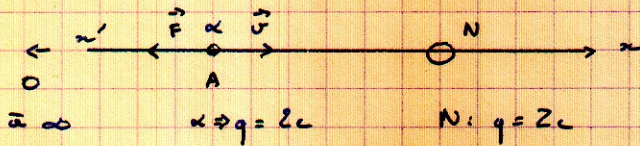 x' F⃗ α v⃗ N x
O A
à ∞ α ⇒ q = 2e N: q = Ze